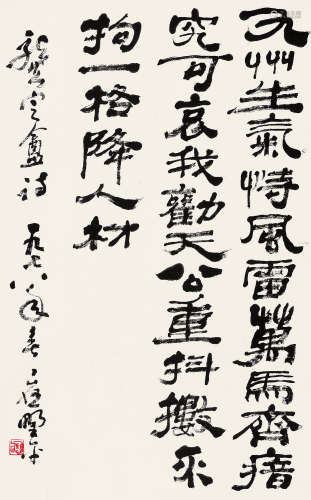 九州生氣恃風雷萬馬齊瘖
究可哀我勸天公重抖擻不
拘一格降人材
龔定盦詩 一九七八年春 應野平